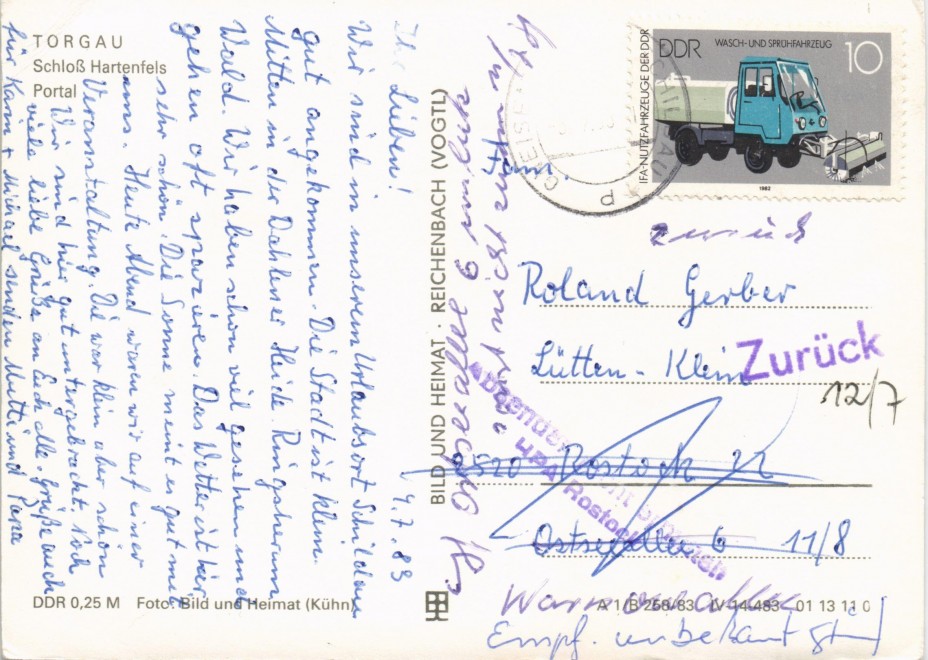 TORGAU
Schloß Hartenfels
Portal
4.7.83
Ihr Lieben!
Wir sind in unserem Urlaubsort Schildau
gut angekommen. Die Stadt ist klein.
Mitten in der Dahlener Heide. Ringsherum
Wald. Wir haben schon viel gesehen und
gehen oft spazieren. Das Wetter ist hier
sehr schön. Die Sonne meint es gut mit
uns. Heute Abend waren wir auf einer
Veranstaltung. Die war klein aber schön
Wir sind hier gut untergebracht. Noch
viele liebe Grüße an Euch alle. Grüße auch
für Karin + Michael senden Mutti und Papa
DDR 0,25 M Foto: Bild und Heimat (Kühn)
BILD UND HEIMAT · REICHENBACH (VOGTL)
A 1/B 258/83 IV-14-483 01 13 11 0
DDR
WASCH- UND SPRÜHFAHRZEUG
10
IFA-NUTZFAHRZEUGE DER DDR
1982
Fam.
zurück
Roland Gerber
Lütten-Klein
Zurück
12/7
2520 Rostock 22
HPA Rostock
Ostseeallee 6 11/8
Warnowallee
Empf. unbekannt